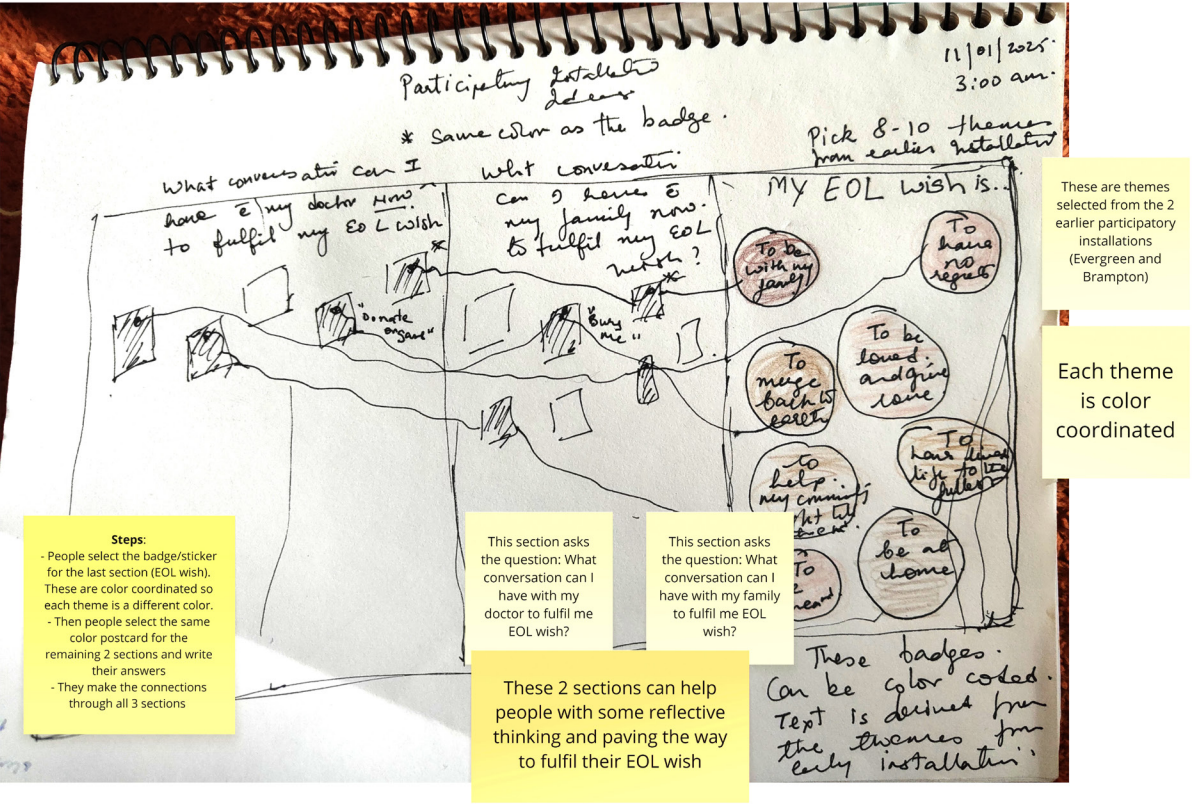 11/01/2025.
3:00 am.
Participatory Installatn
Ideas
* Same color as the badge.
Pick 8-10 themes
from earlier Installation
What conversatn can I
have c̄ my doctor Now
to fulfil my EOL wish
*
What conversatn
can I have c̄
my family now.
to fulfil my EOL
wish?
*
MY EOL wish is...
"Donate
organs"
"Bury
me"
To be
with my
family
To
have
no
regrets
To
merge
back to
earth
To be
loved.
and give
love
To
help
my
To
have lived
life to the
fullest
To
heard
To
be at
home
These badges.
Can be color coded.
Text is derived from
the themes from
early installation
These are themes
selected from the 2
earlier participatory
installations
(Evergreen and
Brampton)
Each theme
is color
coordinated
Steps:
- People select the badge/sticker
for the last section (EOL wish).
These are color coordinated so
each theme is a different color.
- Then people select the same
color postcard for the
remaining 2 sections and write
their answers
- They make the connections
through all 3 sections
This section asks
the question: What
conversation can I
have with my
doctor to fulfil me
EOL wish?
This section asks
the question: What
conversation can I
have with my family
to fulfil me EOL
wish?
These 2 sections can help
people with some reflective
thinking and paving the way
to fulfil their EOL wish